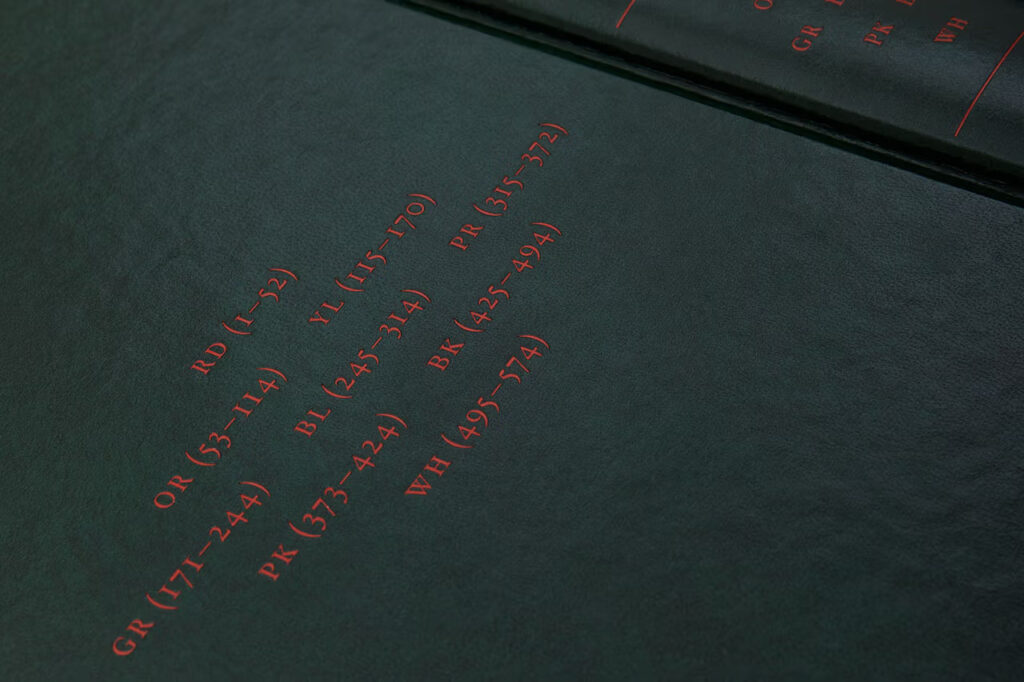 RD (1–52)
OR (53–114) YL (115–170)
GR (171–244) BL (245–314) PR (315–372)
PK (373–424) BK (425–494)
WH (495–574)
GR
PK
WH